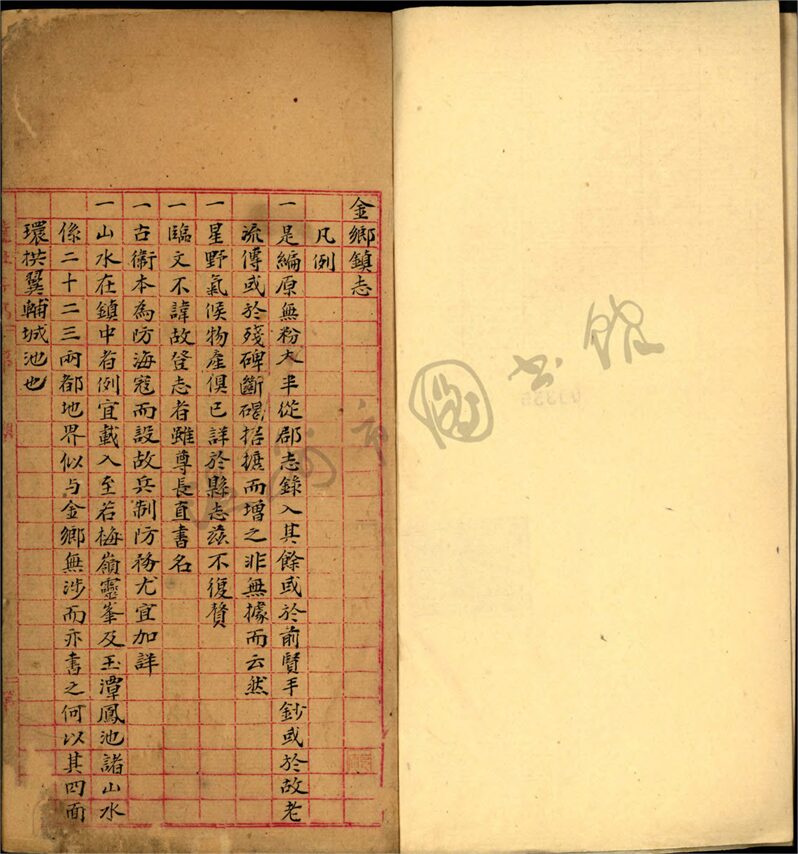 金鄉鎮志
凡例
一是編原無粉本半從郡志錄入其餘或於前賢手鈔或於故老
流傳或於殘碑斷碣捃摭而增之非無據而云然
一星野氣候物產俱已詳於縣志茲不復贅
一臨文不諱故登志者雖尊長直書名
一古衞本為防海寇而設故兵制防務尤宜加詳
一山水在鎮中者例宜載入至若梅嶺靈峯及玉潭鳳池諸山水
係二十二三兩都地界似与金鄉無涉而亦書之何以其四面
環拱翼輔城池也
圖書館